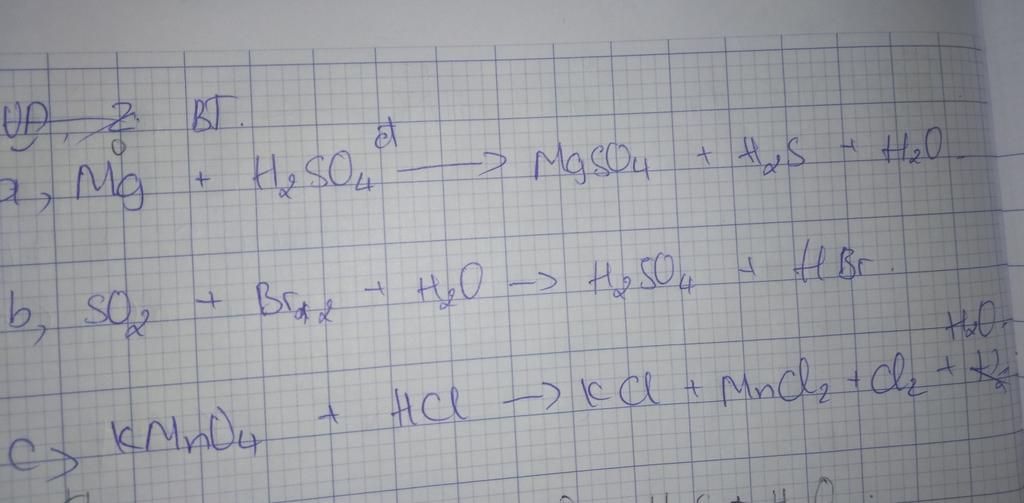 VD 2. BT.
a, Mg⁰ + H₂SO₄ đ → MgSO₄ + H₂S + H₂O
b, SO₂ + Br₂ + H₂O → H₂SO₄ + HBr.
c, KMnO₄ + HCl → KCl + MnCl₂ + Cl₂ + H₂O